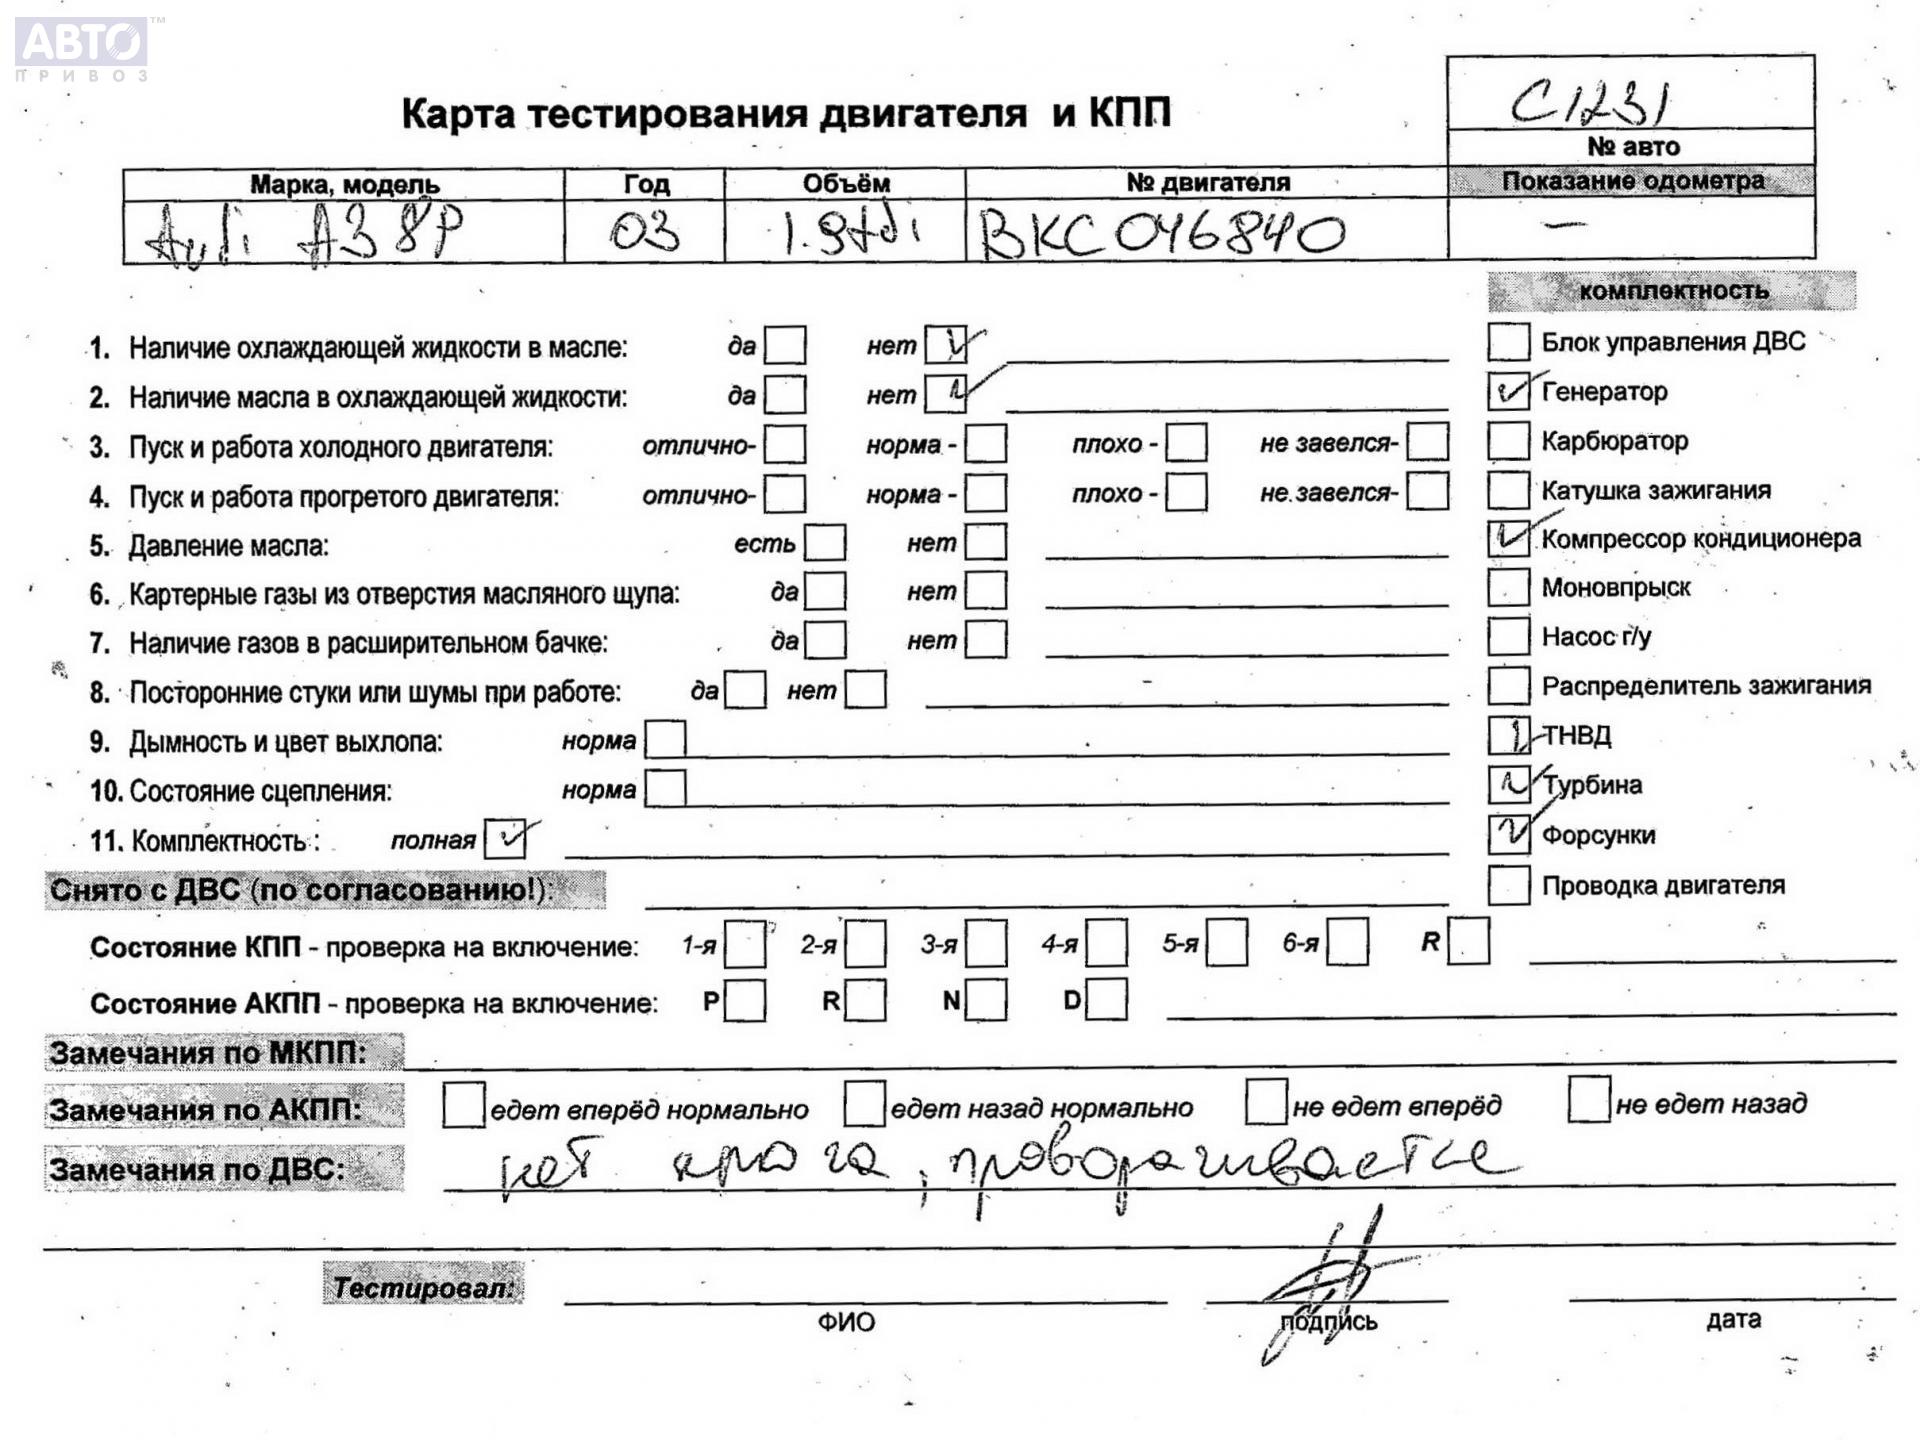 АВТО™
ПРИВОЗ
С1231
Карта тестирования двигателя и КПП
№ авто
Марка, модель Год Объём № двигателя Показание одометра
Audi A3 8P 03 1.9tdi BKC046840 —
комплектность
1. Наличие охлаждающей жидкости в масле: да нет
Блок управления ДВС
2. Наличие масла в охлаждающей жидкости: да нет
Генератор
3. Пуск и работа холодного двигателя: отлично- норма - плохо - не завелся-
Карбюратор
4. Пуск и работа прогретого двигателя: отлично- норма - плохо - не завелся-
Катушка зажигания
5. Давление масла: есть нет
Компрессор кондиционера
6. Картерные газы из отверстия масляного щупа: да нет
Моновпрыск
7. Наличие газов в расширительном бачке: да нет
Насос г/у
8. Посторонние стуки или шумы при работе: да нет
Распределитель зажигания
9. Дымность и цвет выхлопа: норма
ТНВД
10. Состояние сцепления: норма
Турбина
11. Комплектность : полная
Форсунки
Снято с ДВС (по согласованию!):
Проводка двигателя
Состояние КПП - проверка на включение: 1-я 2-я 3-я 4-я 5-я 6-я R
Состояние АКПП - проверка на включение: P R N D
Замечания по МКПП:
Замечания по АКПП: едет вперёд нормально едет назад нормально не едет вперёд не едет назад
Замечания по ДВС: нет , проворачивается
Тестировал:
ФИО подпись дата